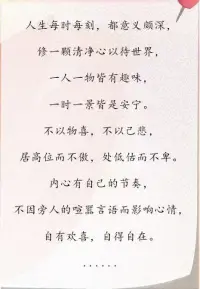 人生每时每刻，都意义颇深，
修一颗清净心以待世界，
一人一物皆有趣味，
一时一景皆是安宁。
不以物喜，不以己悲，
居高位而不傲，处低估而不卑。
内心有自己的节奏，
不因旁人的喧嚣言语而影响心情，
自有欢喜，自得自在。
......